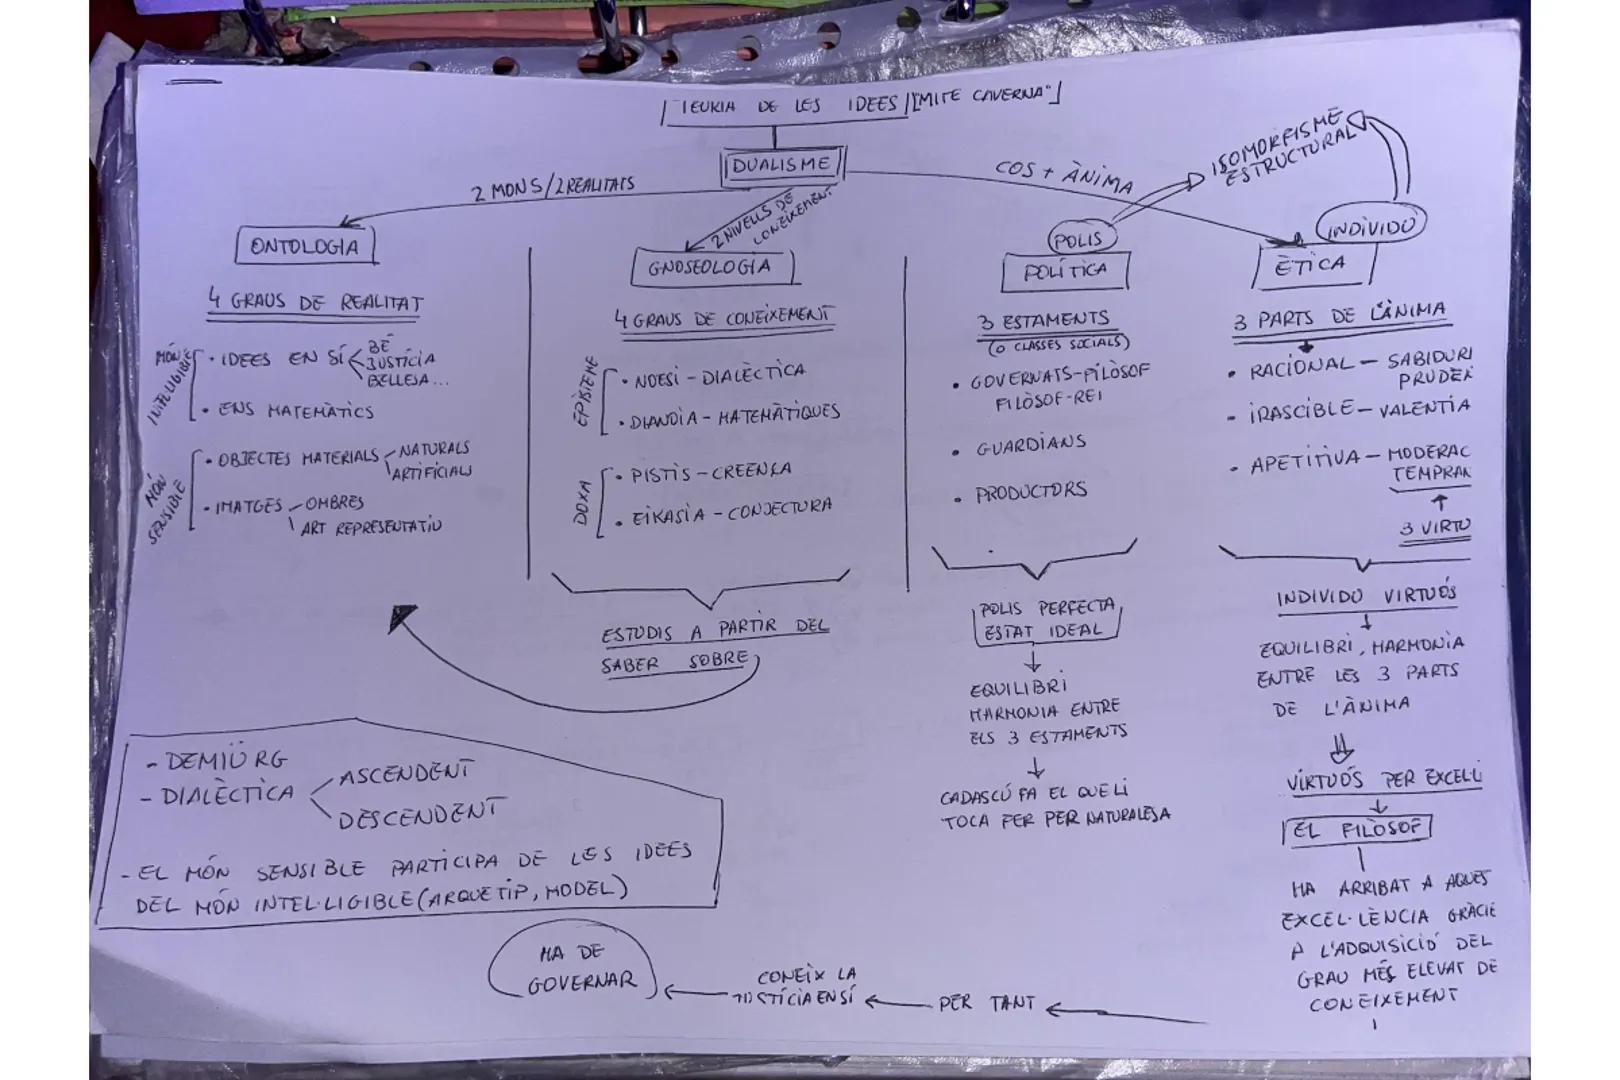 TEORIA DE LES IDEES / "MITE CAVERNA"
DUALISME
2 MONS/2 REALITATS
2 NIVELLS DE
CONEIXEMENT
COS + ÀNIMA
ISOMORFISME
ESTRUCTURAL
ONTOLOGIA
4 GRAUS DE REALITAT
MÓN
INTEL·LIGIBLE
· IDEES EN SÍ
BÉ
JUSTÍCIA
BELLESA...
· ENS MATEMÀTICS
MÓN
SENSIBLE
· OBJECTES MATERIALS
NATURALS
ARTIFICIALS
· IMATGES
OMBRES
ART REPRESENTATIU
GNOSEOLOGIA
4 GRAUS DE CONEIXEMENT
EPISTEME
· NOESI - DIALÈCTICA
· DIANOIA - MATEMÀTIQUES
DOXA
· PISTIS - CREENÇA
· EIKASIA - CONJECTURA
ESTUDIS A PARTIR DEL
SABER SOBRE
POLIS
POLÍTICA
3 ESTAMENTS
(O CLASSES SOCIALS)
· GOVERNATS-FILÒSOF
FILÒSOF-REI
· GUARDIANS
· PRODUCTORS
POLIS PERFECTA
ESTAT IDEAL
EQUILIBRI
HARMONIA ENTRE
ELS 3 ESTAMENTS
CADASCÚ FA EL QUE LI
TOCA FER PER NATURALESA
INDIVIDU
ÈTICA
3 PARTS DE L'ÀNIMA
· RACIONAL - SABIDURI
PRUDEN
· IRASCIBLE - VALENTIA
· APETITIVA - MODERAC
TEMPRAN
3 VIRTU
INDIVIDU VIRTUÓS
EQUILIBRI, HARMONIA
ENTRE LES 3 PARTS
DE L'ÀNIMA
VIRTUÓS PER EXCEL·L
EL FILÒSOF
HA ARRIBAT A AQUES
EXCEL·LÈNCIA GRÀCIE
A L'ADQUISICIÓ DEL
GRAU MÉS ELEVAT DE
CONEIXEMENT
PER TANT
CONEIX LA
JUSTÍCIA EN SÍ
HA DE
GOVERNAR
- DEMIÜRG
- DIALÈCTICA
ASCENDENT
DESCENDENT
- EL MÓN SENSIBLE PARTICIPA DE LES IDEES
DEL MÓN INTEL·LIGIBLE (ARQUETIP, MODEL)